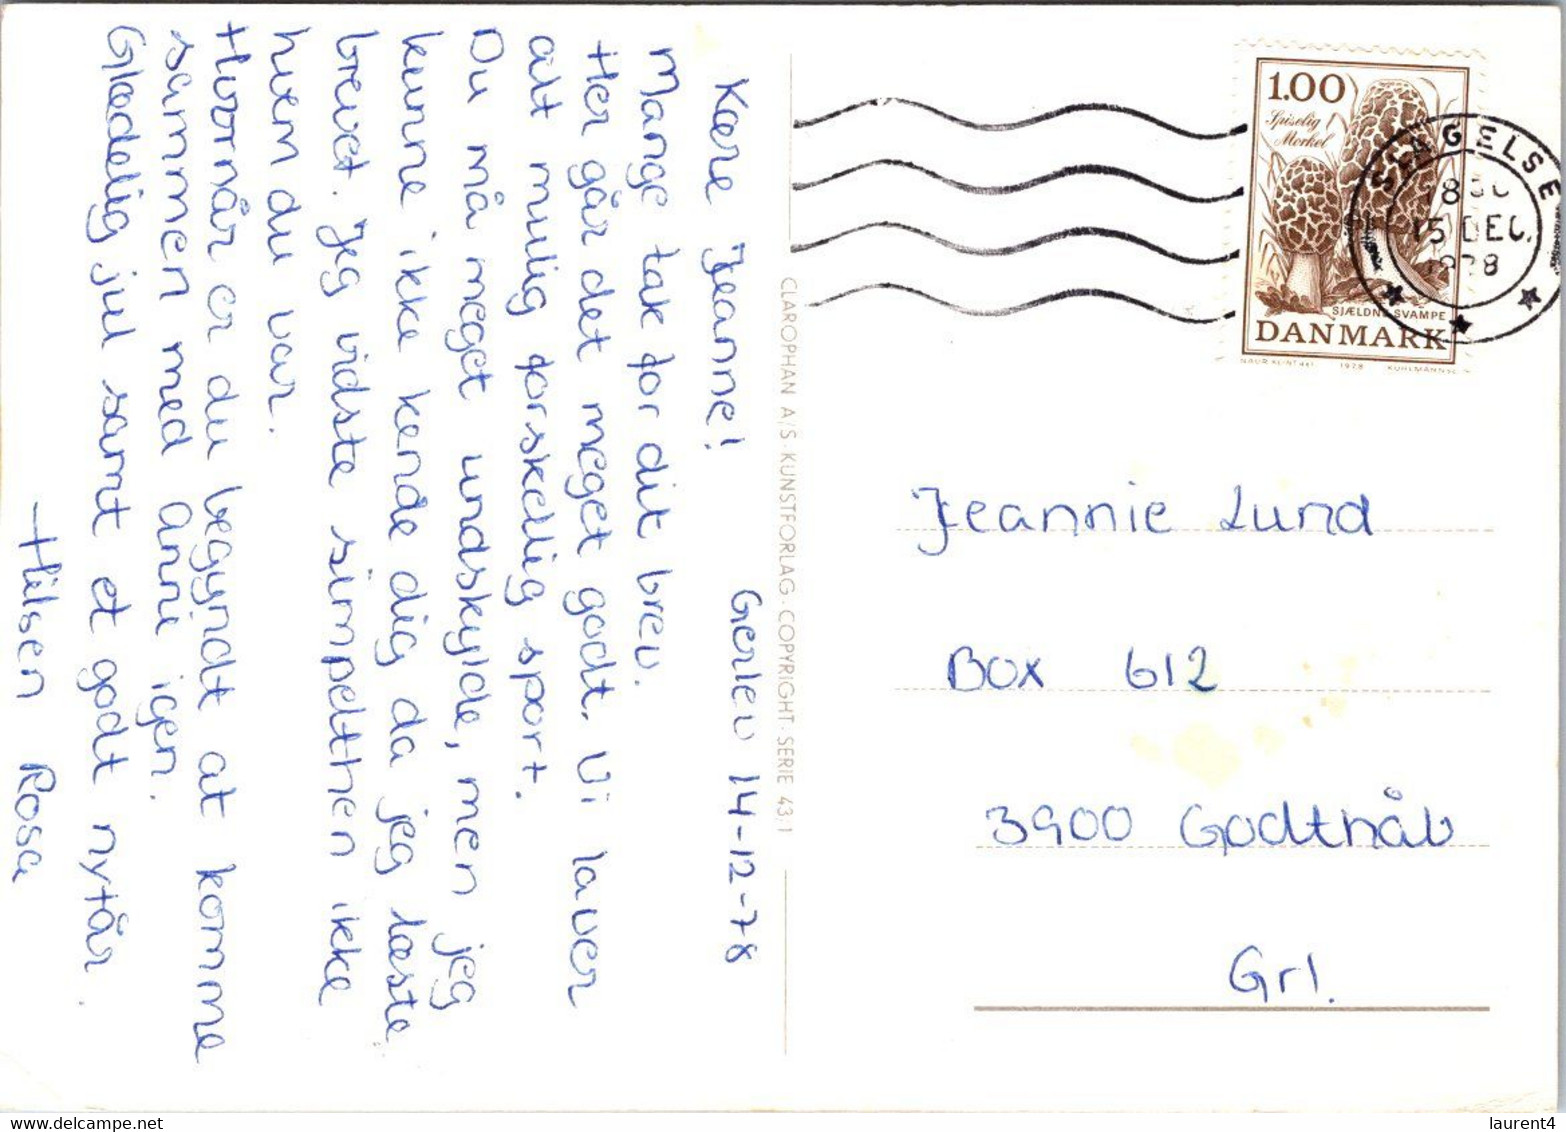 Gerlev 14-12-78
Kære Jeanne!
Mange tak for dit brev.
Her går det meget godt. Vi laver
alt mulig forskellig sport.
Du må meget undskylde, men jeg
kunne ikke kende dig da jeg læste
brevet. Jeg vidste simpelthen ikke
hvem du var.
Hvornår er du begyndt at komme
sammen med Anni igen.
Glædelig jul samt et godt nytår.
Hilsen Rosa
CLAROPHAN A/S · KUNSTFORLAG · COPYRIGHT · SERIE 43:1
1.00
Spiselig
Morkel
SJÆLDNE SVAMPE
DANMARK
1978
SLAGELSE
15 DEC.
1978
Jeannie Lund
Box 612
3900 Godthåb
Grl.
laurent4